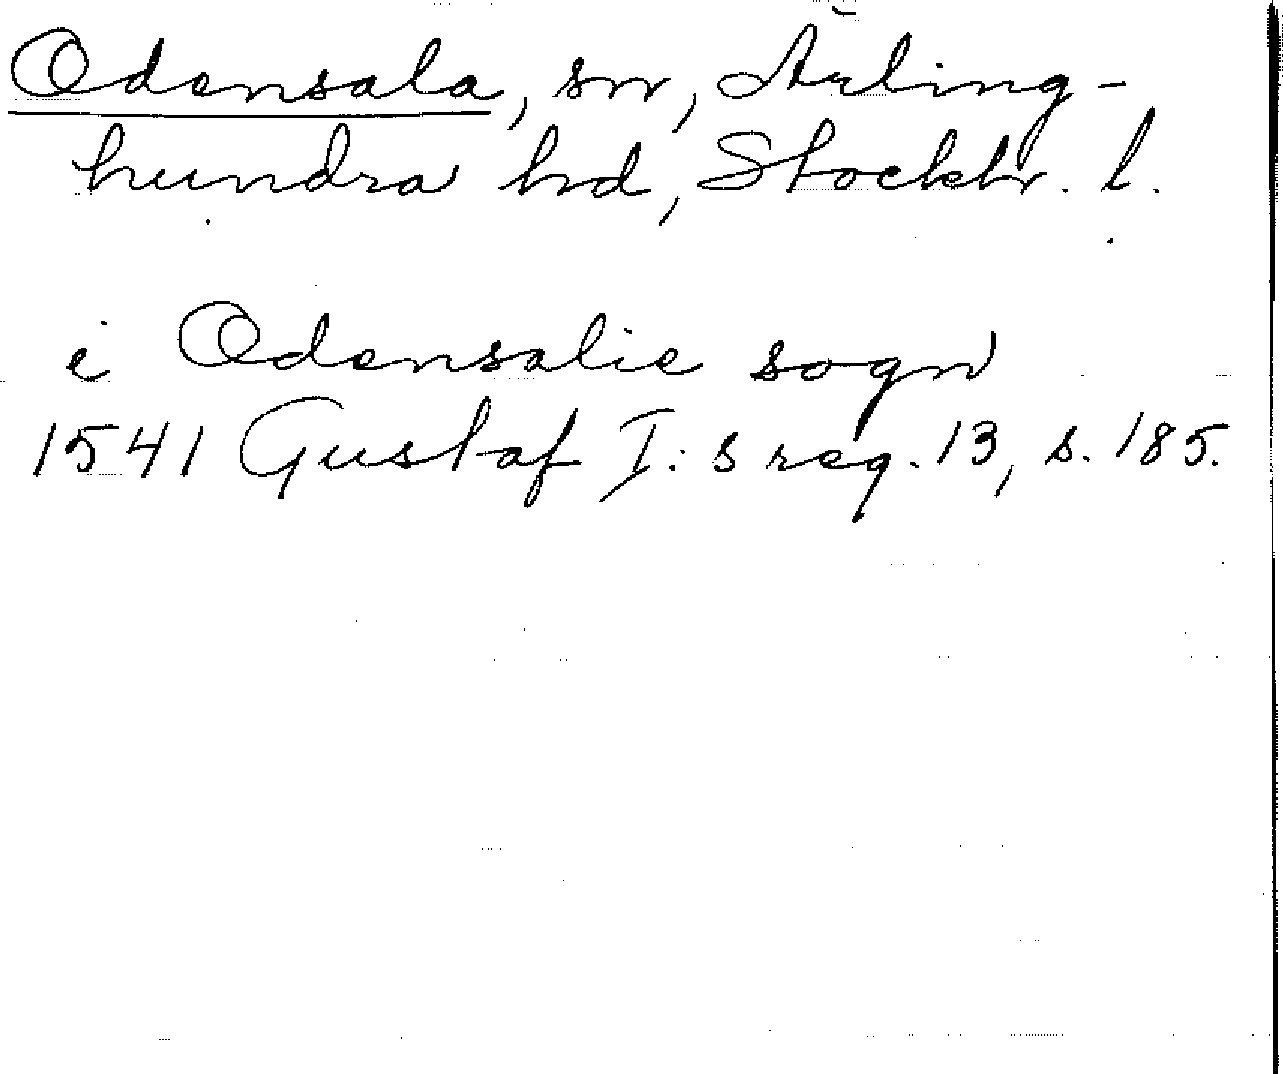 Odensala, sn, Ärling-
hundra hd, Stockh. l.
i Odensalie sogn
1541 Gustaf I:s reg. 13, s. 185.